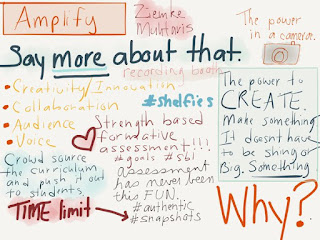 Amplify
Ziemke
Muhtaris
The power
in a camera.
Say more about that.
recording booth
• Creativity/Innovation
• Collaboration
• Audience
• Voice
#shelfies
Strength based
formative
assessment!!!
#goals #sbl
assessment
has never been
this FUN.
#authentic
#snapshots
Crowd source
the curriculum
and push it out
to students
TIME limit
The power to
CREATE.
Make something
It doesn't have
to be shiny or
Big. Something
Why?